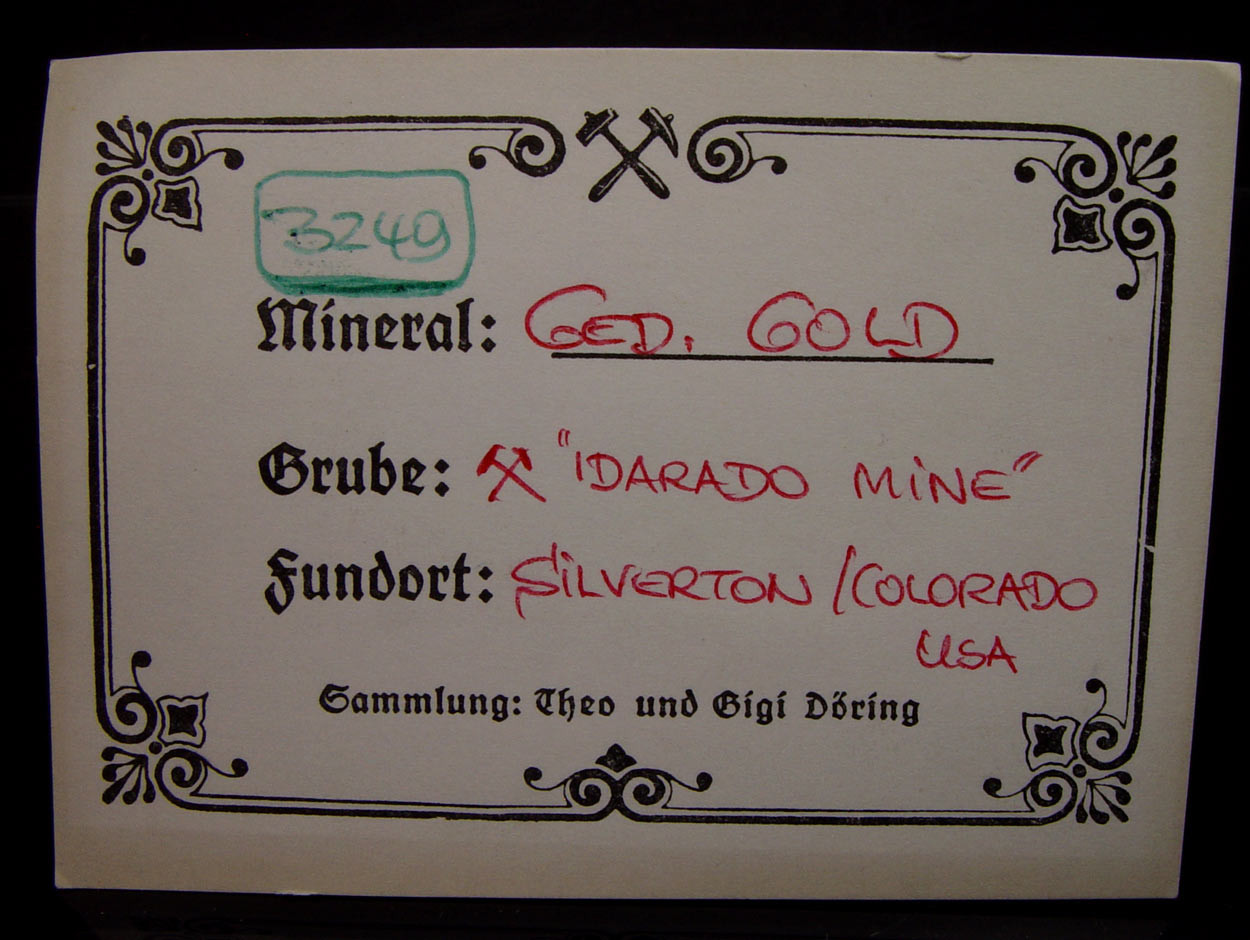 3249
Mineral: GED. GOLD
Grube: ⚒ "IDARADO MINE"
Fundort: SILVERTON / COLORADO
USA
Sammlung: Theo und Gigi Döring